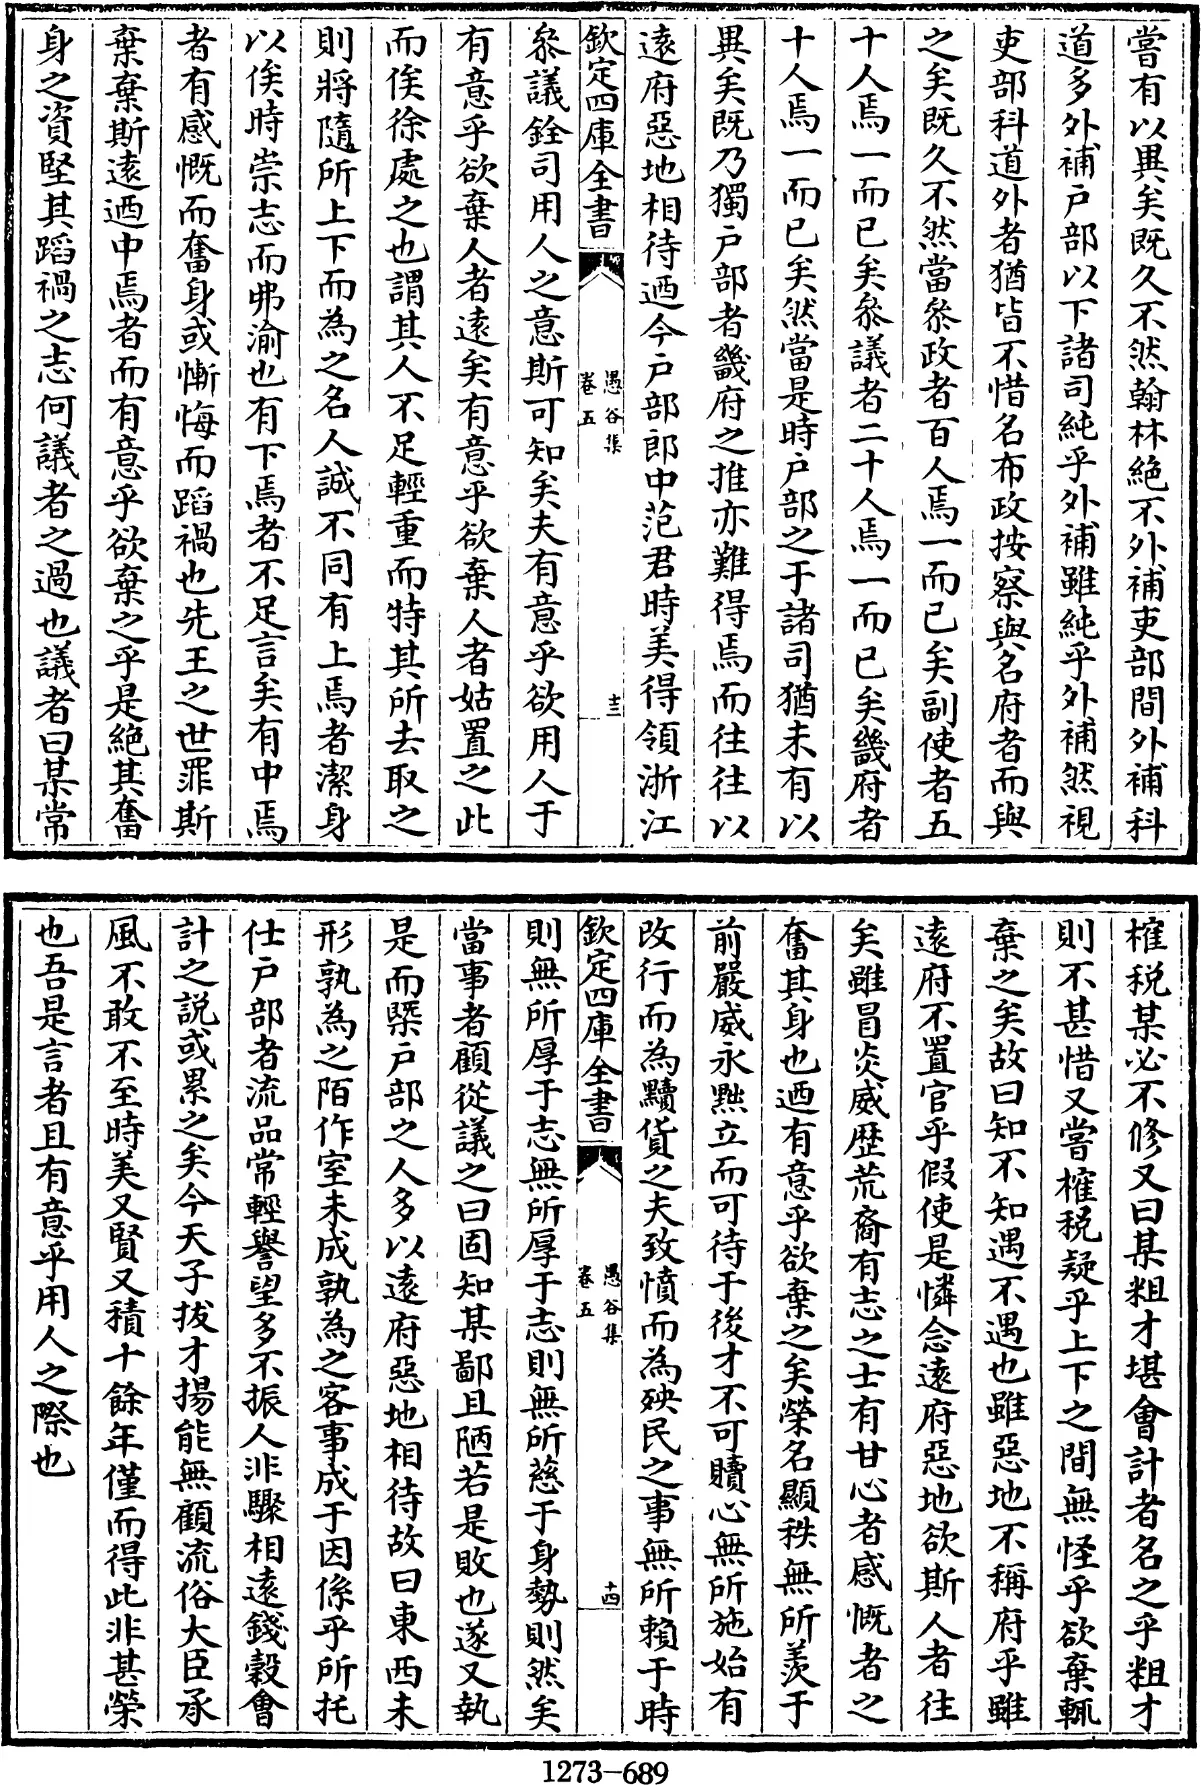 嘗有以異矣既久不然翰林絶不外補吏部間外補科
道多外補户部以下諸司純乎外補雖純乎外補然視
吏部科道外者猶皆不惜名布政按察與名府者而與
之矣既久不然當叅政者百人焉一而已矣副使者五
十人焉一而已矣叅議者二十人焉一而已矣畿府者
十人焉一而已矣然當是時户部之于諸司猶未有以
異矣既乃獨户部者畿府之推亦難得焉而往往以
遠府惡地相待迺今户部郎中范君時美得領浙江
欽定四庫全書
愚谷集
卷五
十三
叅議銓司用人之意斯可知矣夫有意乎欲用人于
有意乎欲棄人者遠矣有意乎欲棄人者姑置之此
而俟徐處之也謂其人不足輕重而特其所去取之
則將隨所上下而為之名人誠不同有上焉者潔身
以俟時崇志而弗渝也有下焉者不足言矣有中焉
者有感慨而奮身或慚悔而蹈禍也先王之世罪斯
棄棄斯遠迺中焉者而有意乎欲棄之乎是絶其奮
身之資堅其蹈禍之志何議者之過也議者曰某常
榷税某必不修又曰某粗才堪會計者名之乎粗才
則不甚惜又嘗榷税疑乎上下之間無怪乎欲棄輒
棄之矣故曰知不知遇不遇也雖惡地不稱府乎雖
遠府不置官乎假使是憐念遠府惡地欲斯人者往
矣雖冒炎威歴荒裔有志之士有甘心者感慨者之
奮其身也迺有意乎欲棄之矣榮名顯秩無所羨于
前嚴威永黜立而可待于後才不可贖心無所施始有
改行而為黷貨之夫致憤而為殃民之事無所賴于時
欽定四庫全書
愚谷集
卷五
十四
則無所厚于志無所厚于志則無所慈于身勢則然矣
當事者顧從議之曰固知某鄙且陋若是敗也遂又執
是而槩户部之人多以遠府惡地相待故曰東西未
形孰為之陌作室未成孰為之客事成于因係乎所托
仕户部者流品常輕譽望多不振人非驟相遠錢穀會
計之説或累之矣今天子拔才揚能無顧流俗大臣承
風不敢不至時美又賢又積十餘年僅而得此非甚榮
也吾是言者且有意乎用人之際也
1273-689